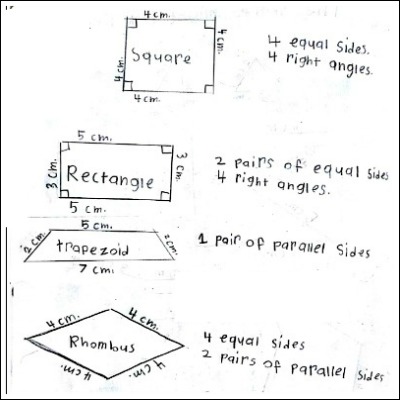 4 cm.
4 cm.
Square
4 cm.
4 cm.
4 equal sides.
4 right angles.
5 cm.
3 cm.
Rectangle
3 cm.
5 cm.
2 pairs of equal sides
4 right angles.
5 cm.
2 cm.
trapezoid
2 cm.
7 cm.
1 pair of parallel sides
4 cm.
4 cm.
Rhombus
4 cm.
4 cm.
4 equal sides
2 pairs of parallel sides